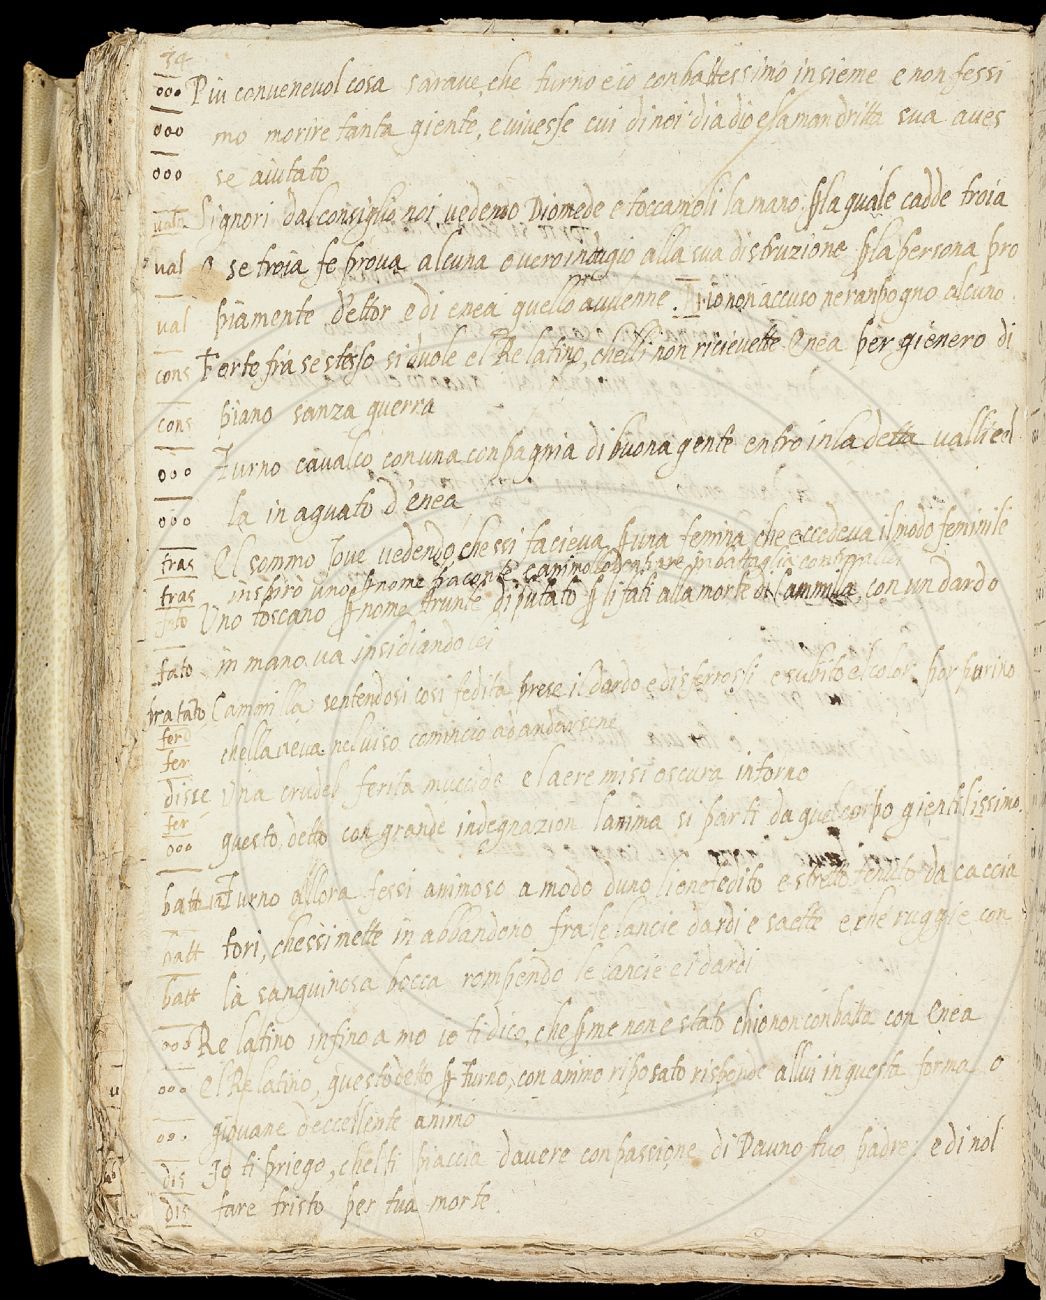 34
ooo Piu convenevol cosa sarave, che turno e io conbattessimo insieme e non fessi
ooo mo morire tanta giente, e vivesse cui di noi dia dio e la man dritta sua aves
ooo se aiutato
Signori dal consiglio noi vedemo Diomede e toccamoli la mano, ꝑ la quale cadde troia
val se troia fe prova alcuna overo indugio alla sua distruzione ꝑ la persona pro
val piamente d'ettor e di enea quello avvenne. io non accuso ne ranpogno alcuno
cons Forte fra se stesso si duole el Re latino, chelli non ricievette Enea per gienero di
cons piano sanza guerra
ooo Turno cavalco con una conpagnia di buona gente entro in la detta valle ed
ooo la in aguato d'enea
fras El sommo Jove vedendo che ssi facieva ꝑ una femina che eccedeva il modo feminile
fras inspirò uno ꝑ nome
Uno toscano ꝑ nome Arunte diputato ꝑ li fati alla morte di Cammilla con un dardo
fato in mano va insidiando lei
Cammilla sentendosi cosi fedita prese il dardo e disferrossi e subito el color porpurino
fer chella aveva nel viso comincio ad andarsene
disse Una crudel ferita muccide e laere misi oscura intorno
fer
ooo questo detto con grande indegnazion lanima si parti da quel corpo gientilissimo
batt Turno allora fessi animoso a modo duno lione fedito e stretto tenuto da caccia
batt tori, chessi mette in abbandono fra le lancie dardi e saette e che ruggie con
batt la sanguinosa bocca rompendo le lancie e i dardi
ooo Re latino infino a mo io ti dico, che ꝑ me non e stato chio non conbatta con Enea
ooo El Re latino, questo detto ꝑ turno, con animo riposato risponde allui in questa forma o
ooo giovane deccellente animo
dis Io ti priego, chel ti piaccia davere conpassione di Dauno tuo padre: e di nol
dis fare tristo per tua morte.